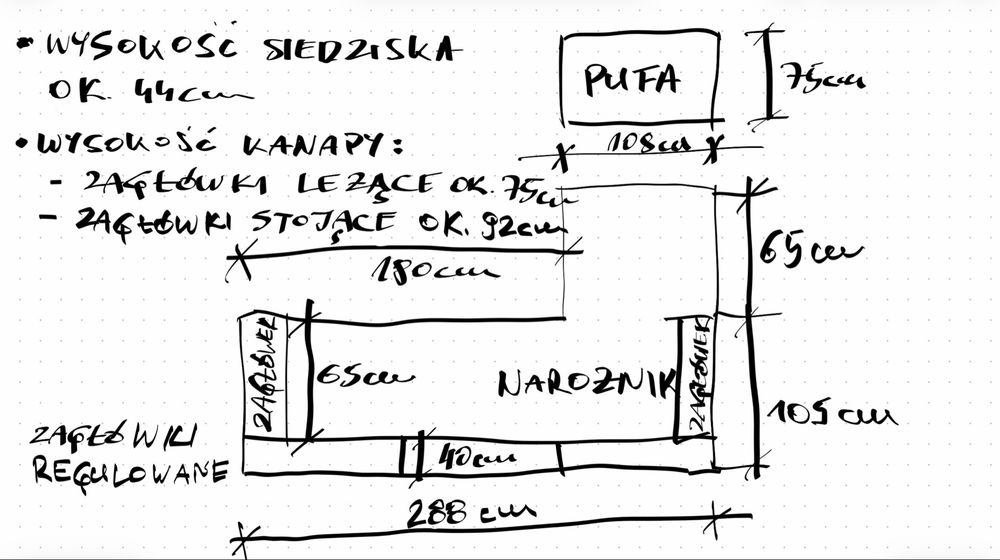 • WYSOKOŚĆ SIEDZISKA
OK. 44cm
• WYSOKOŚĆ KANAPY:
- ZAGŁÓWKI LEŻĄCE OK. 75cm
- ZAGŁÓWKI STOJĄCE OK. 92cm
PUFA
75cm
108cm
180cm
65cm
ZAGŁÓWEK
65cm
NAROŻNIK
ZAGŁÓWEK
105cm
ZAGŁÓWKI
REGULOWANE
40cm
288cm